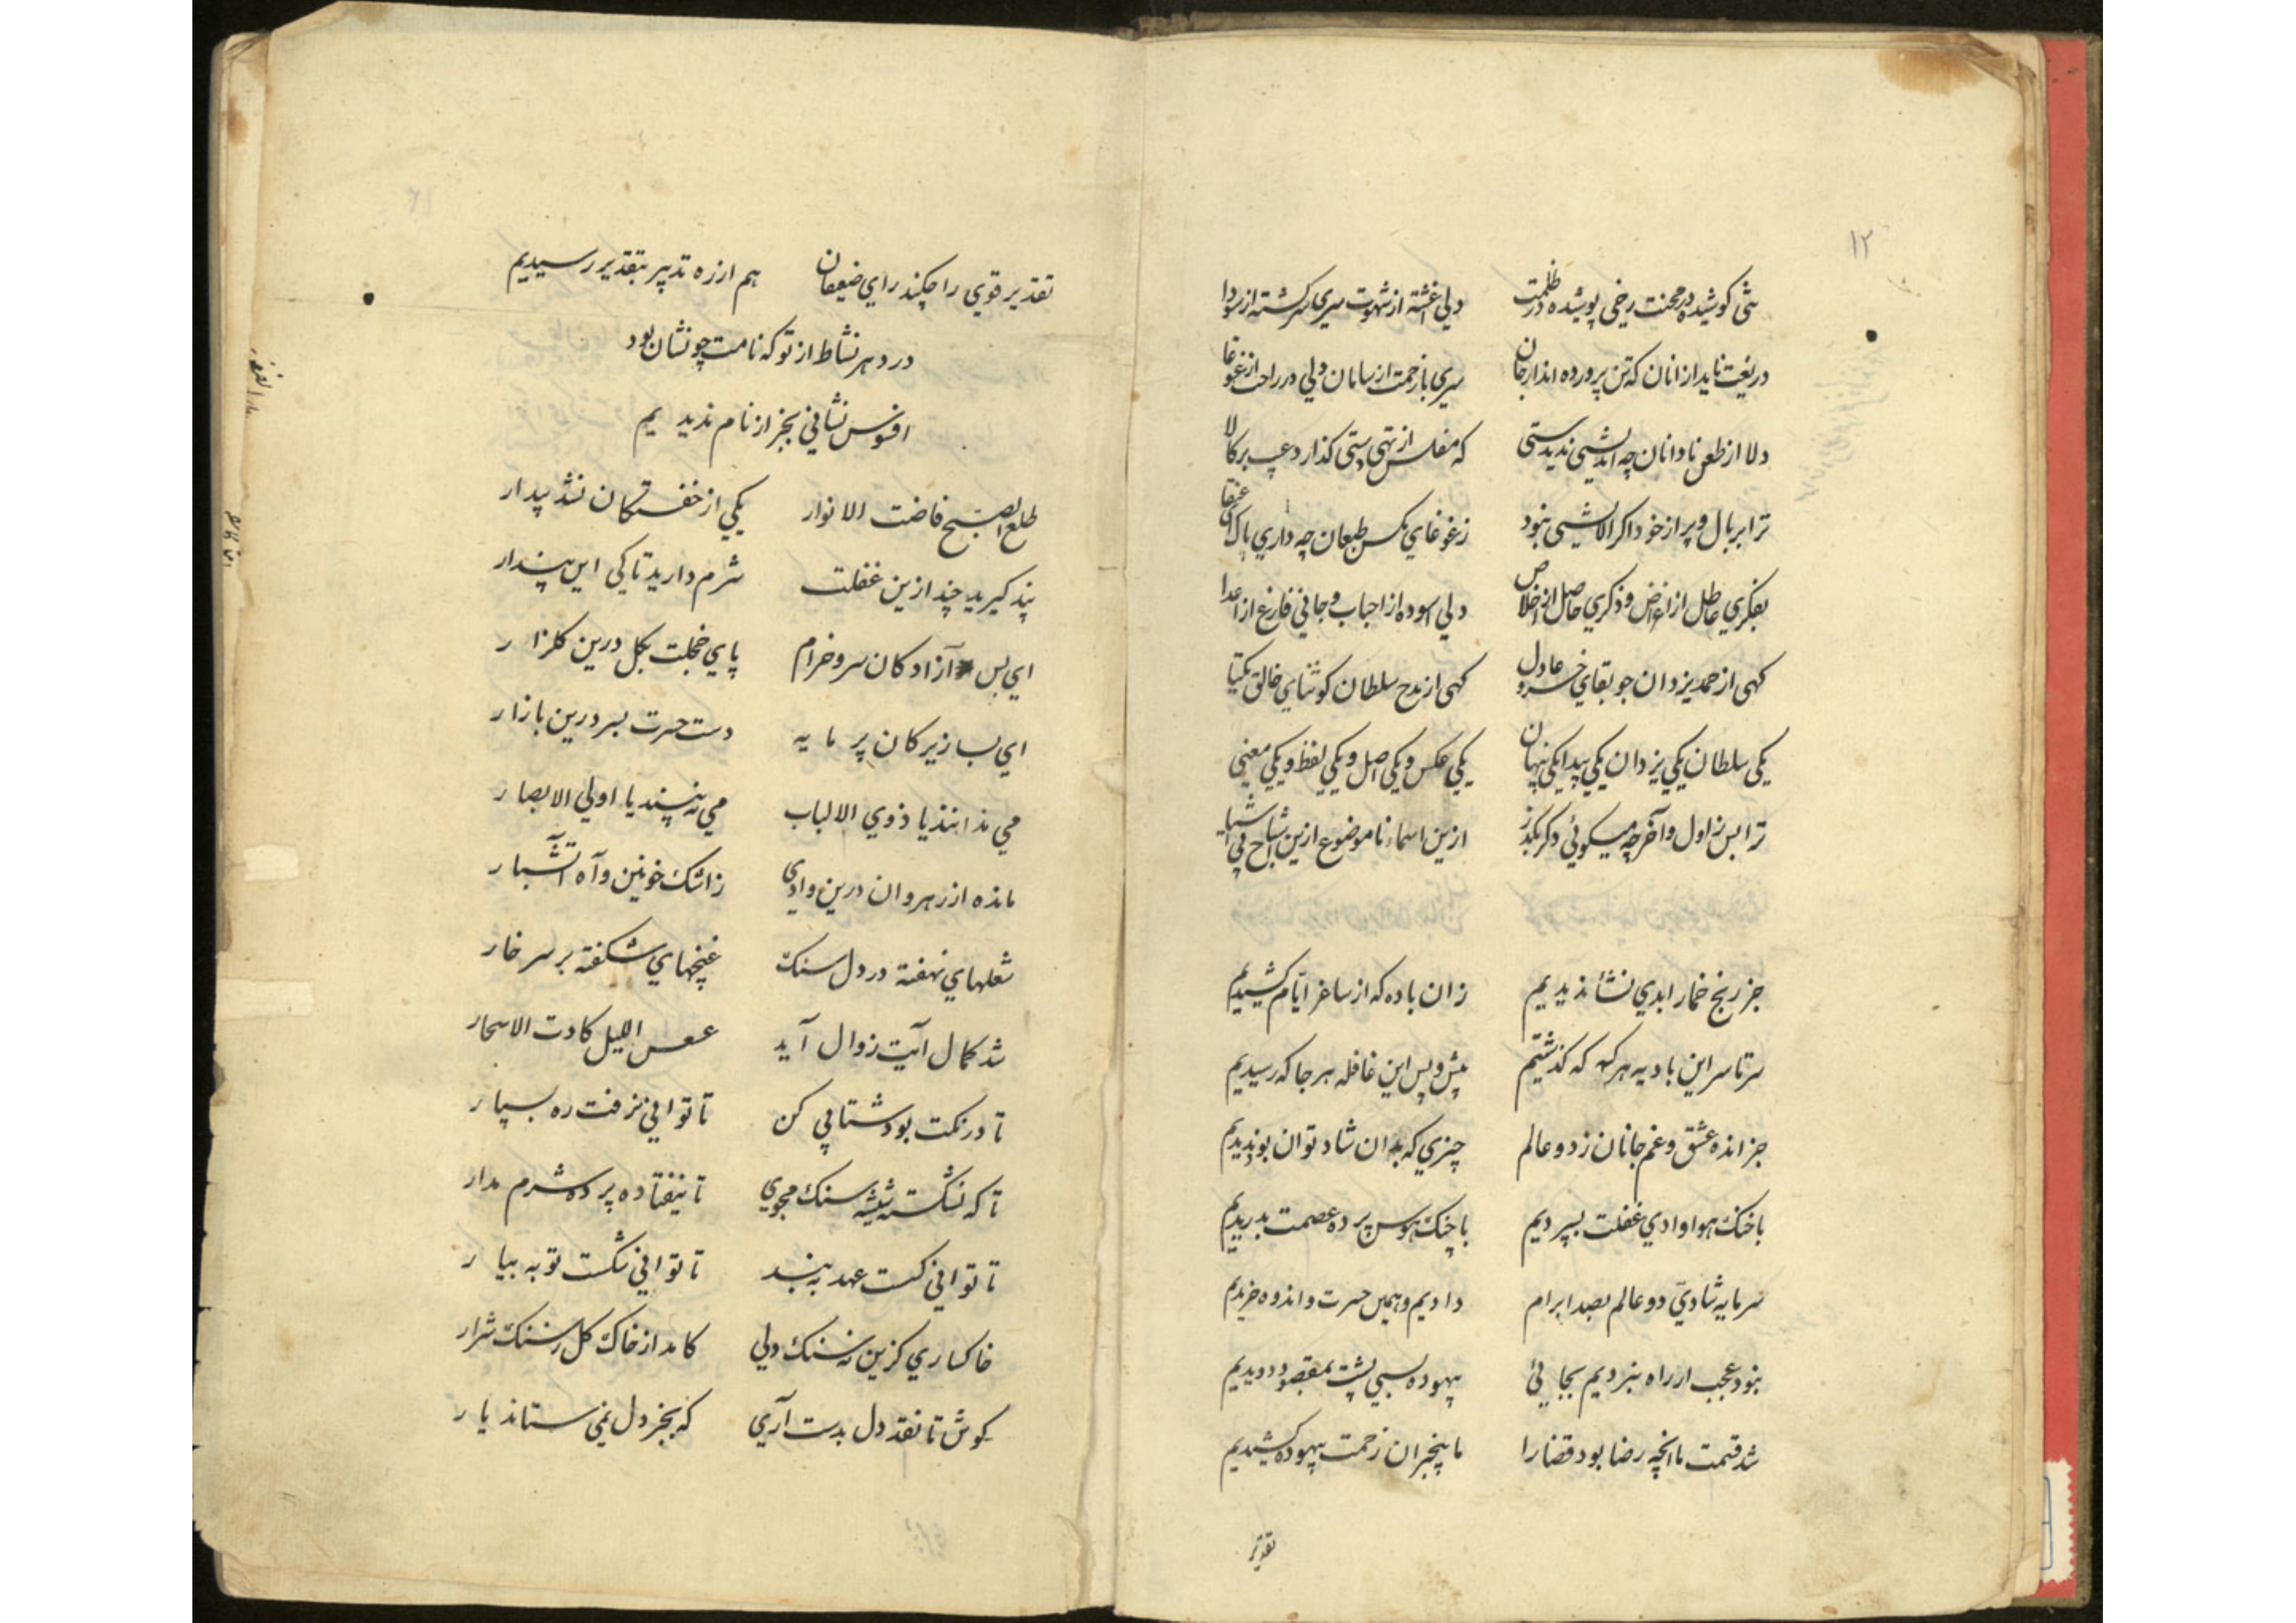 ۱۲
تنی کوشیده در محنت رخی پوشیده در ظلمت دلی اغشته از شهوت سری سرکشته از سودا
دریغت ناید از انان که تن پرورده اند از جان سری با زحمت از سامان دلی در راحت از غوغا
دلا از طعن نادانان چه اندیشی ندیدستی که مفلس از تهی دستی کذارد عیب بر کالا
ترا بر بال و پر از خود اکر الایشی نبود ز غوغای مکس طبعان چه داری باک ای عنقا
بفکری عاطل از اغراض و ذکری حاصل از اخلاص دلی اسوده از احباب و جانی فارغ از اعدا
کهی از حمد یزدان جو بقای خسرو عادل کهی از مدح سلطان کو ثنای خالق یکتا
یکی سلطان یکی یزدان یکی پیدا یکی پنهان یکی عکس و یکی اصل و یکی لفظ و یکی معنی
ترا بس ز اول و آخر چه میکوئی دکر بکذر ازین اسماء نا موضوع ازین اشباح بی اشیا
جز رنج خمار ابدی نشأ ندیدیم زان باده که از ساغر ایّام کشیدیم
سر تا سر این بادیه هر که که کذشتیم پیش و پس این غافله هر جا که رسیدیم
جز انده عشق و غم جانان ز دو عالم چیزی که بدان شاد توان بود ندیدیم
با خنک هوا وادی غفلت بسپردیم با چنک هوس پرده عصمت بدریدیم
سرمایه شادیّ دو عالم بصد ابرام دادیم و همین حسرت و اندوه خریدیم
نبود عجب ار راه نبردیم بجایئ بیهوده بسی پشت بمقصود دویدیم
شد قسمت ما انچه رضا بود قضا را ما بیخبران زحمت بیهوده کشیدیم
تقدیر
تقدیر قوی را چکند رای ضعیفان هم از ره تدبیر بتقدیر رسیدیم
در دهر نشاط از تو که نامت چو نشان بود
افسوس نشانی بجز از نام ندیدیم
طلع الصبح فاضت الانوار یکی از خفتکان نشد بیدار
پند کیرید چند ازین غفلت شرم دارید تا کی این پندار
ای بس آزادکان سرو خرام پای خجلت بکل درین کلزار
ای بسا زیرکان پر مایه دست حسرت بسر درین بازار
می ندانند یا ذوی الالباب می نبینند یا اولی الابصار
مانده از رهروان درین وادی ز اشک خونین و آه آتشبار
شعلهای نهفته در دل سنک غنچهای شکفته بر سر خار
شد کمال آیت زوال آید عسعس اللیل کادت الاسحار
تا درنکت بود شتابی کن تا توانی نرفت ره بسپار
تا که نشکسته شیشه سنک مجوی تا نیفتاده پرده شرم مدار
تا توانی کسست عهد ببند تا توانی شکست توبه بیار
خاکساری کزین نه سنک دلی کامد از خاک کل ز سنک شرار
کوش تا نقد دل بدست آری که بجز دل نمی ستاند یار